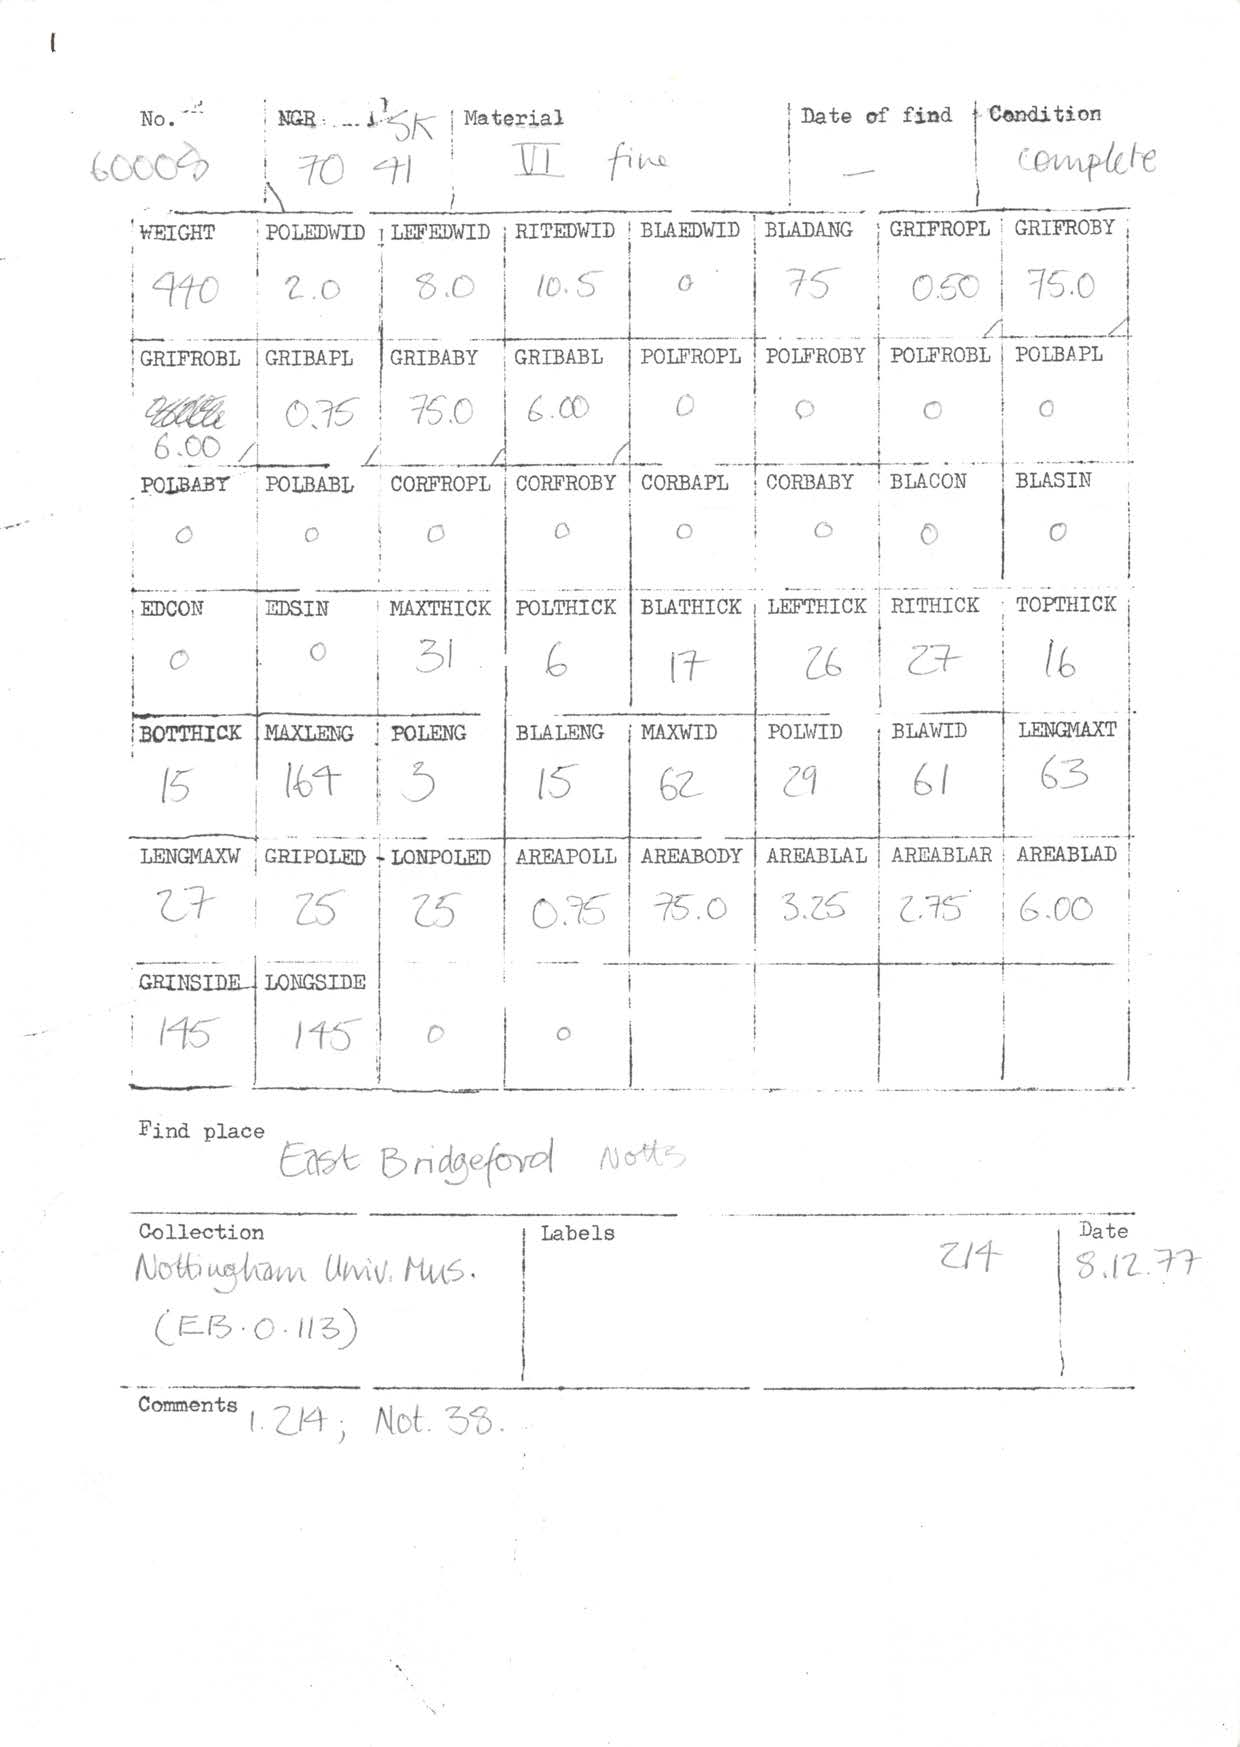 1
No. NGR SK Material Date of find Condition
70 41 VI fine — complete
WEIGHT POLEDWID LEFEDWID RITEDWID BLAEDWID BLADANG GRIFROPL GRIFROBY
440 2.0 8.0 10.5 0 75 0.50 75.0
GRIFROBL GRIBAPL GRIBABY GRIBABL POLFROPL POLFROBY POLFROBL POLBAPL
0.75 75.0 6.00 0 0 0 0
6.00
POLBABY POLBABL CORFROPL CORFROBY CORBAPL CORBABY BLACON BLASIN
0 0 0 0 0 0 0 0
EDCON EDSIN MAXTHICK POLTHICK BLATHICK LEFTHICK RITHICK TOPTHICK
0 0 31 6 17 26 27 16
BOTTHICK MAXLENG POLENG BLALENG MAXWID POLWID BLAWID LENGMAXT
15 164 3 15 62 29 61 63
LENGMAXW GRIPOLED LONPOLED AREAPOLL AREABODY AREABLAL AREABLAR AREABLAD
27 25 25 0.75 75.0 3.25 2.75 6.00
GRINSIDE LONGSIDE
145 145 0 0
Find place
East Bridgeford Notts
Collection Labels Date
Nottingham Univ. Mus. 214 8.12.77
(EB.0.113)
Comments 1.214; Not. 38.